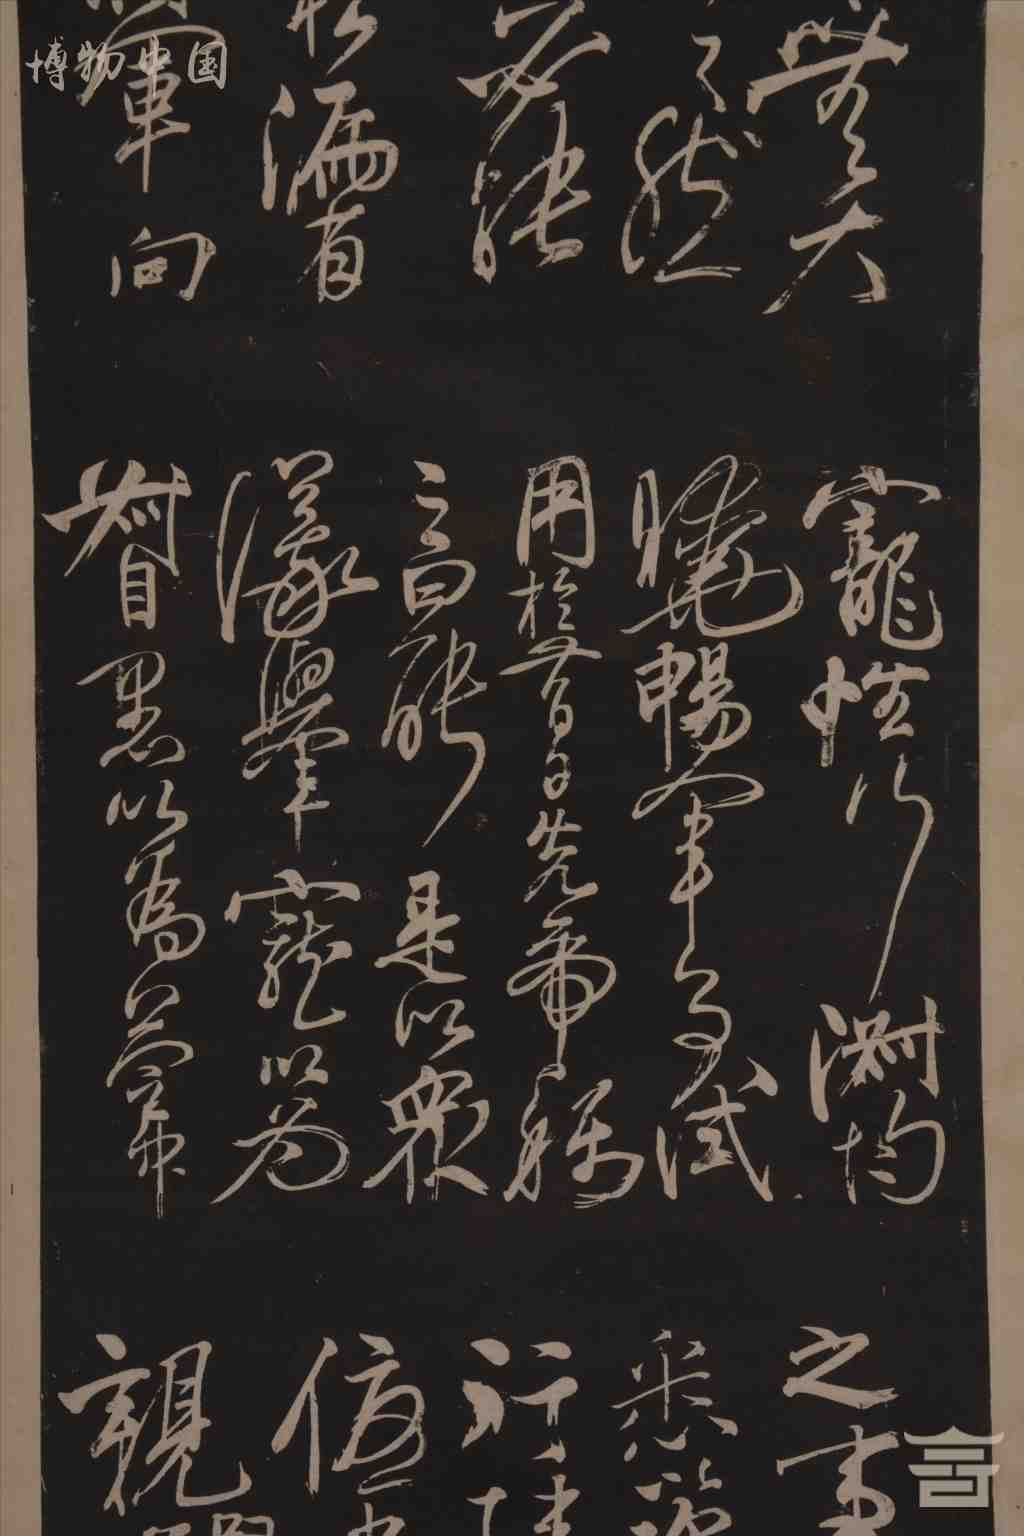 博物中国
無大
之然
必能
漏有
軍向
寵性行淑均
曉暢軍事試
用於昔日先帝稱
之曰能是以衆
議舉寵以為
督愚以為營中
之事
悉
行
優
親